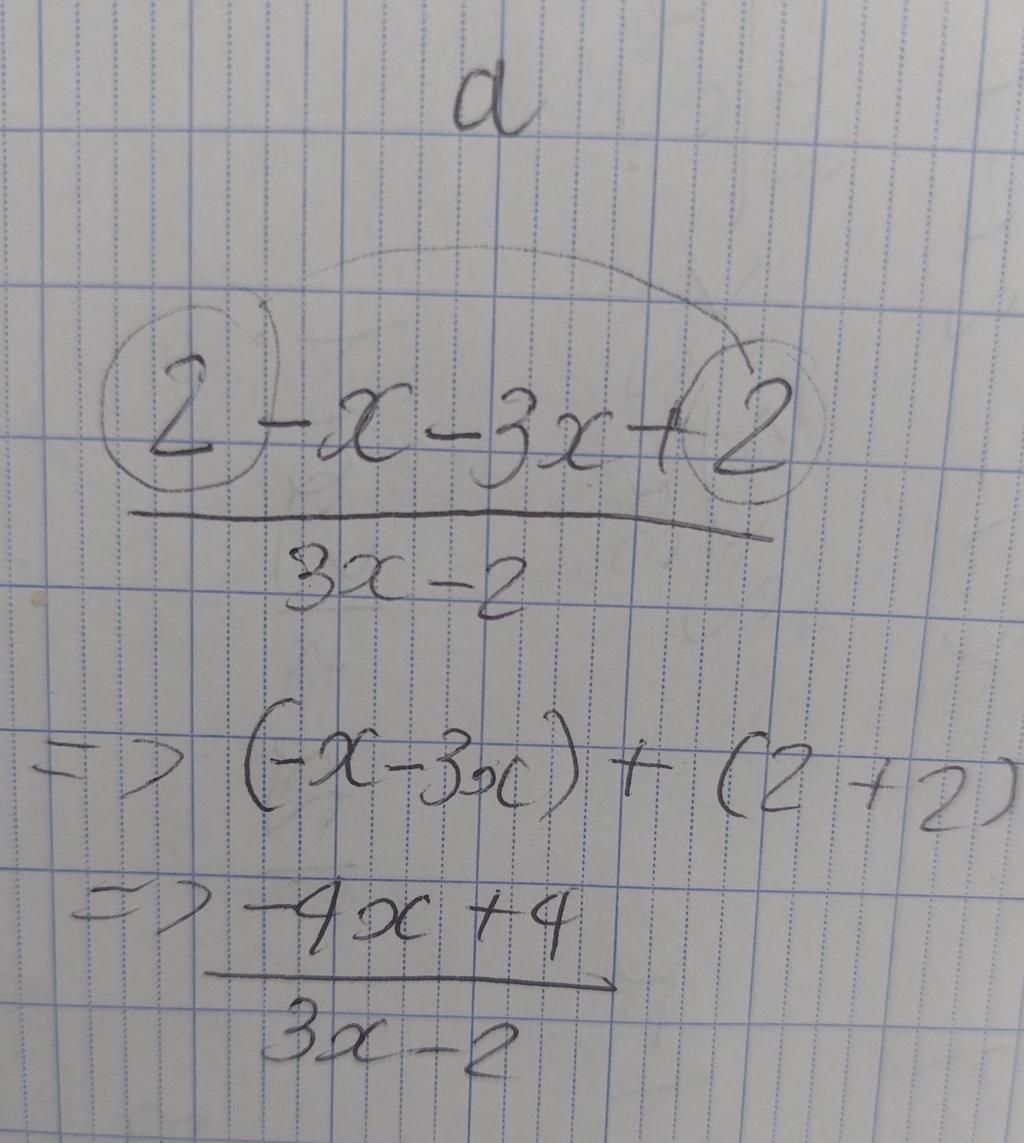 a
2-x-3x+2
3x-2
=> (-x-3x) + (2+2)
=> -4x+4
3x-2